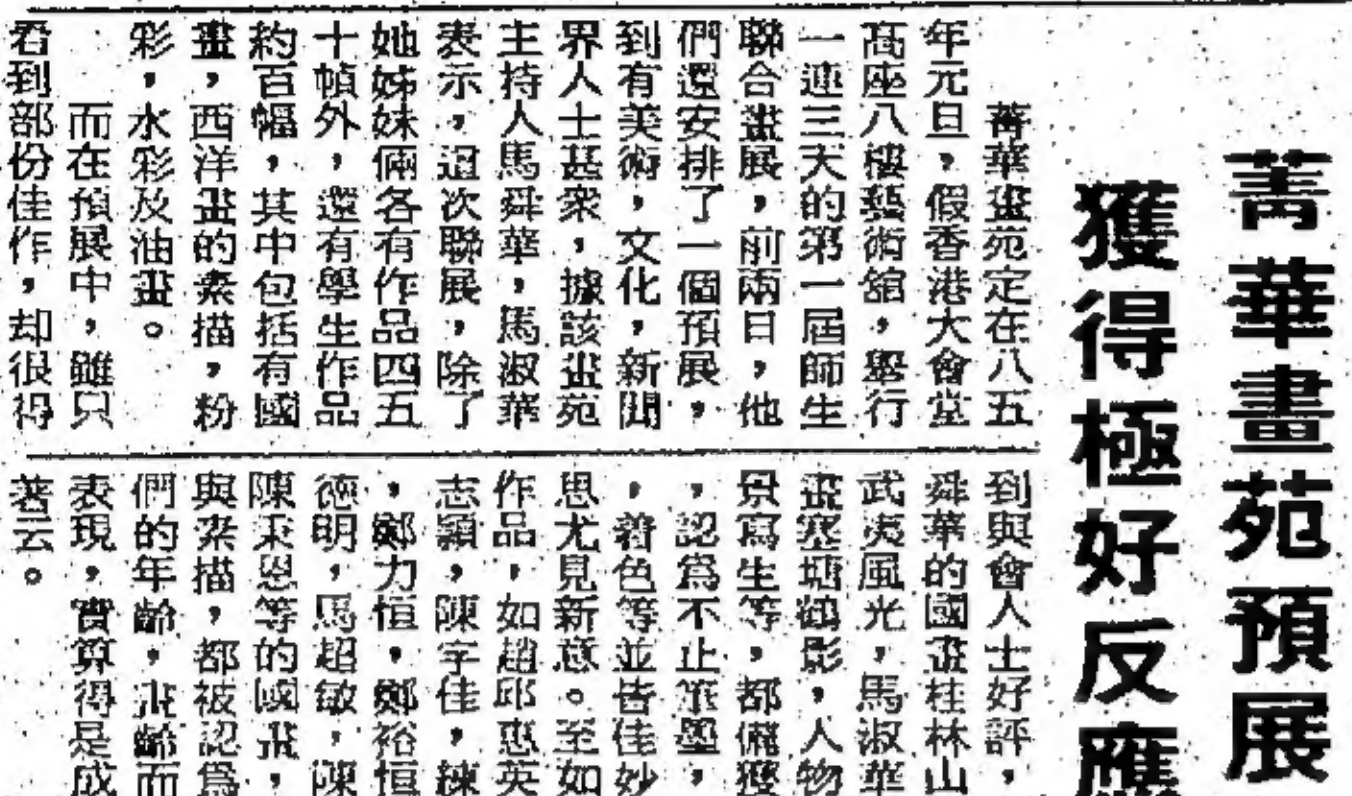 菁華畫苑預展
獲得極好反應
菁華畫苑定在八五
年元旦，假香港大會堂
高座八樓藝術舘，舉行
一連三天的第一屆師生
聯合畫展，前兩日，他
們還安排了一個預展，
到有美術，文化，新聞
界人士甚衆，據該畫苑
主持人馬舜華，馬淑華
表示，這次聯展，除了
她姊妹倆各有作品四五
十幀外，還有學生作品
約百幅，其中包括有國
畫，西洋畫的素描，粉
彩，水彩及油畫。
而在預展中，雖只
看到部份佳作，却很得
到與會人士好評，
舜華的國畫桂林山
武夷風光，馬淑華
畫塞塘鶴影，人物
景寫生等，都備獲
，認爲不止筆墨，
，着色等並皆佳妙
思尤見新意。至如
作品，如趙邱惠英
志穎，陳字佳，練
，鄭力恒，鄭裕恒
德明，馬超敏，陳
陳秉恩等的國畫，
與素描，都被認爲
們的年齡，畫齡而
表現，實算得是成
著云。